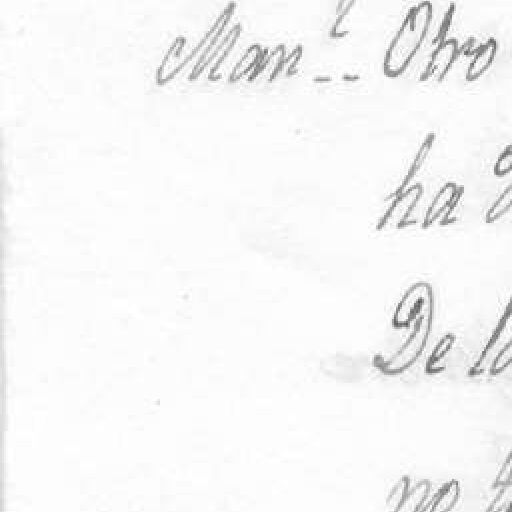 Man.l -- Otro
ha
De la
no